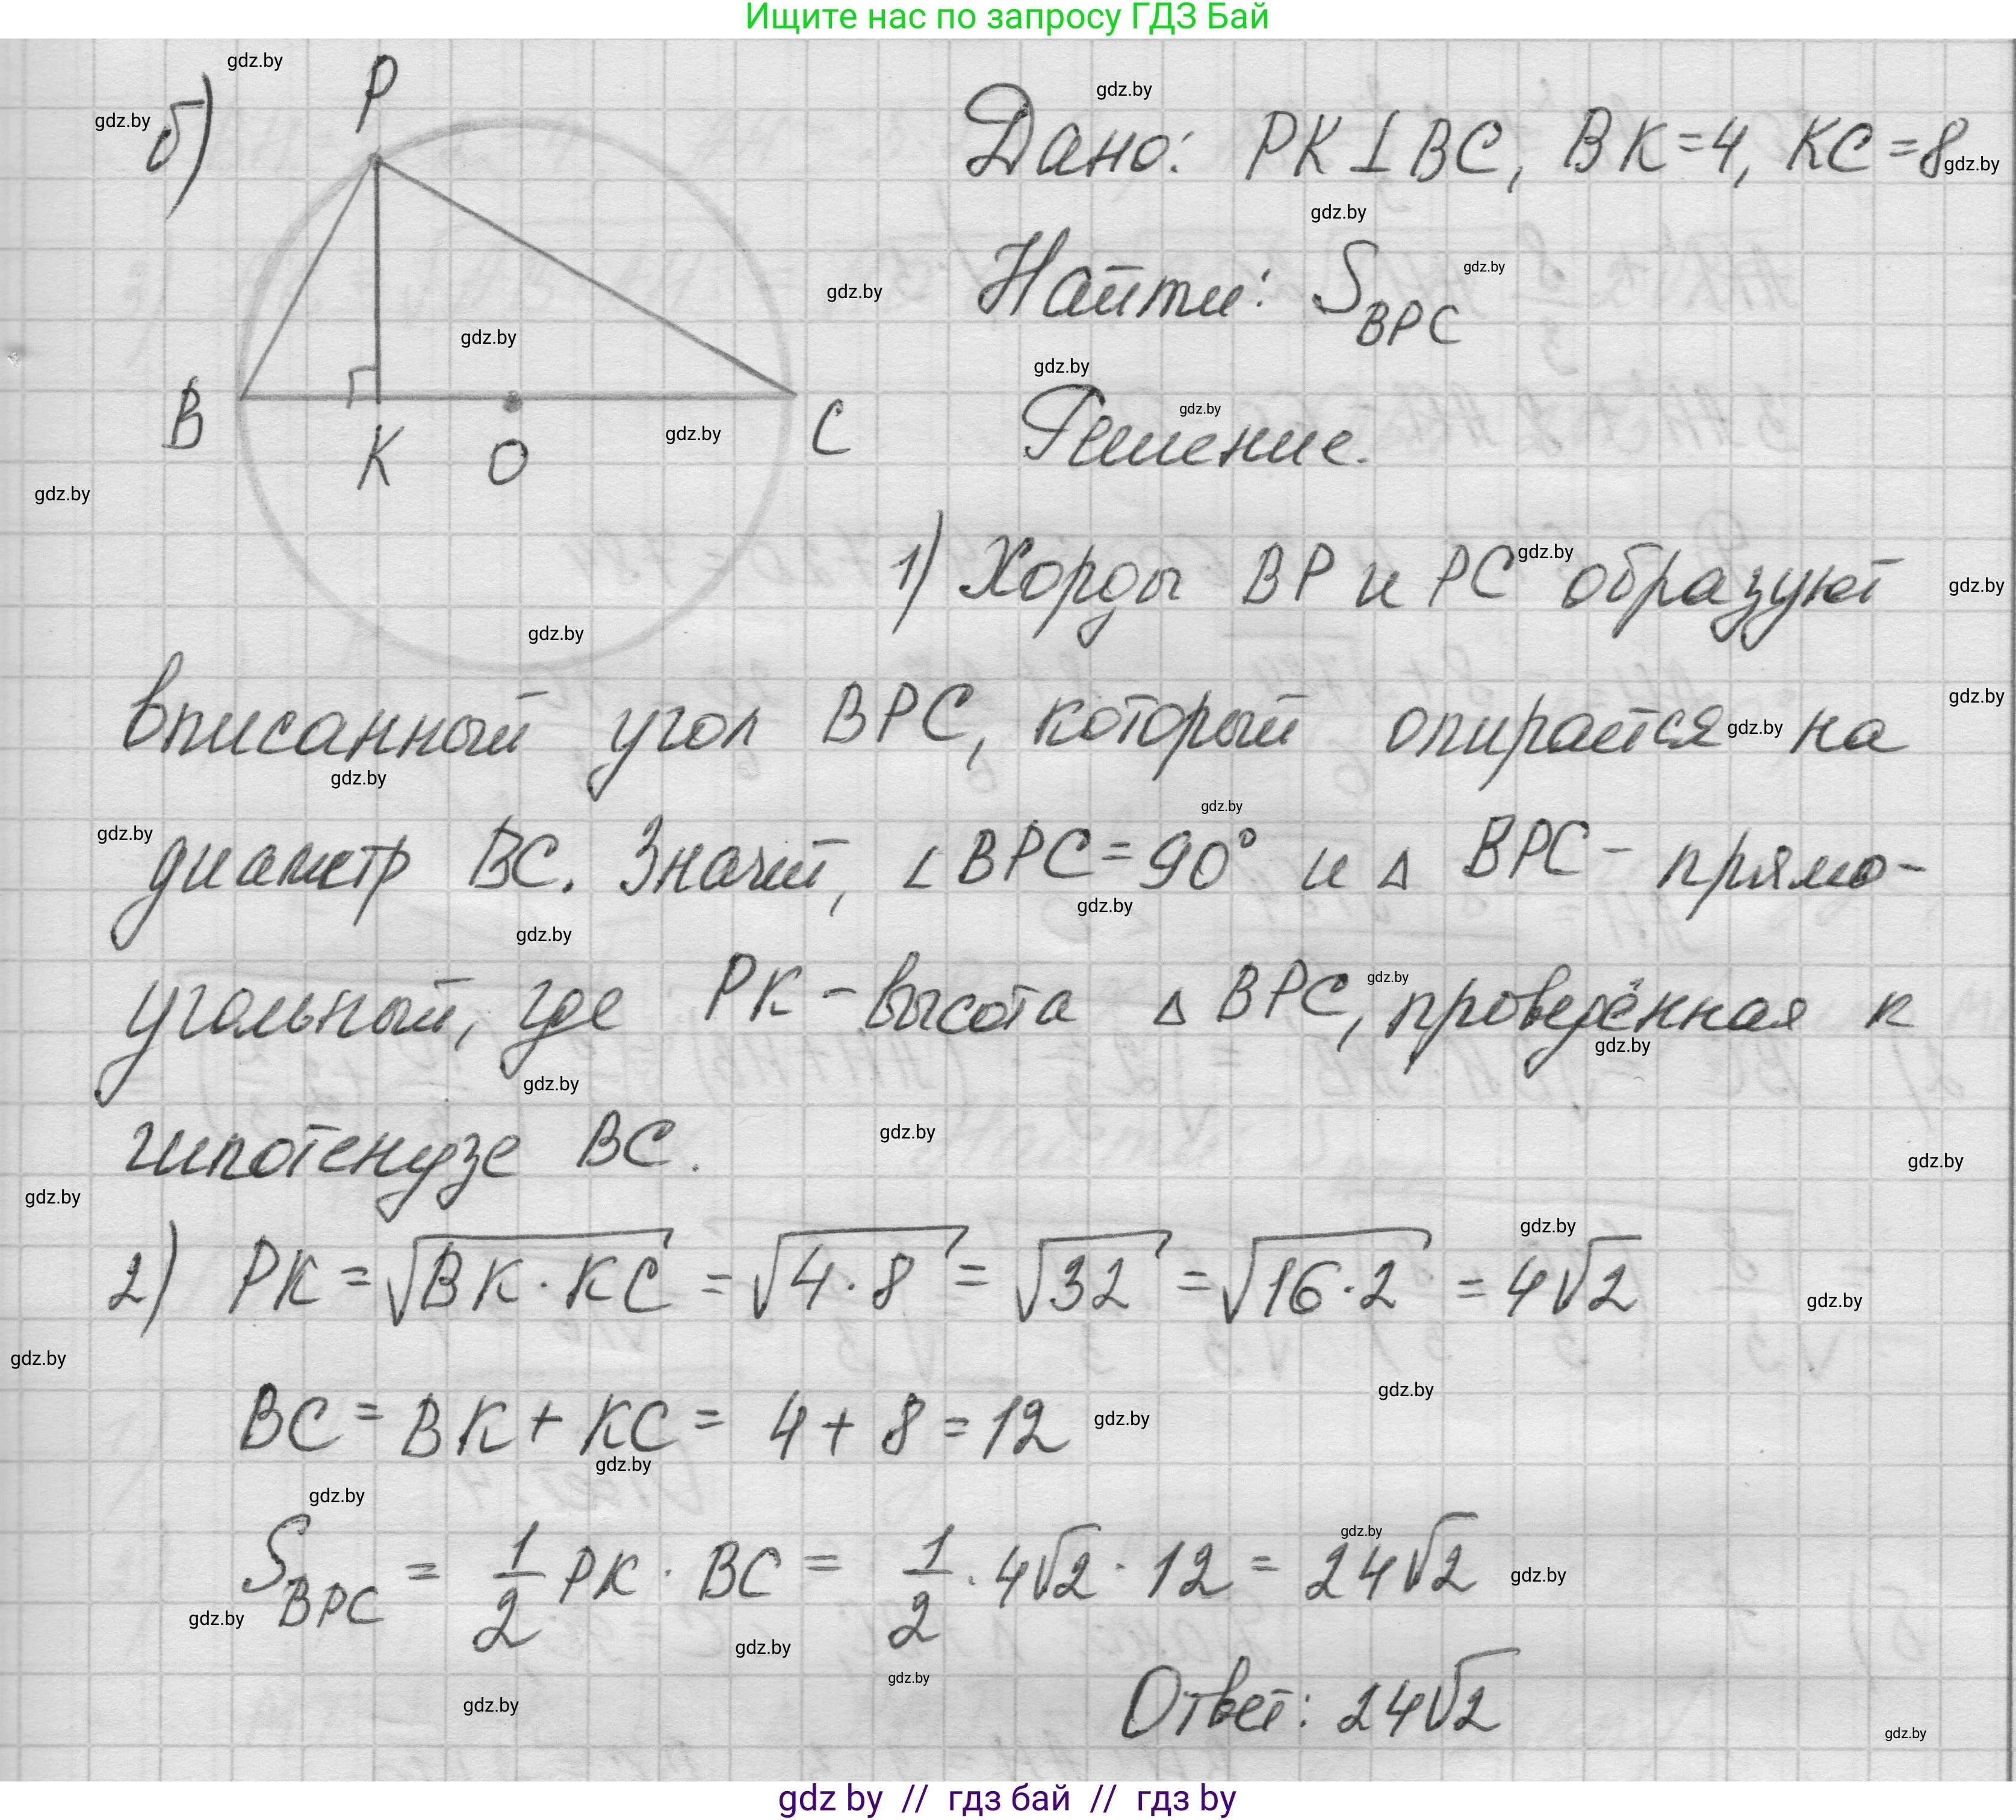 Ищите нас по запросу ГДЗ Бай
б)
P
B
K
O
C
Дано: PK⊥BC, BK=4, KC=8
Найти: S_BPC
Решение.
1) Хорды BP и PC образуют
вписанный угол BPC, который опирается на
диаметр BC. Значит, ∠BPC=90° и △ BPC- прямо-
угольный, где PK - высота △ BPC, проведённая к
гипотенузе BC.
2) PK = √(BK · KC) = √(4 · 8) = √32 = √(16 · 2) = 4√2
BC = BK + KC = 4 + 8 = 12
S_BPC = 1/2 PK · BC = 1/2 · 4√2 · 12 = 24√2
Ответ: 24√2
gdz by // гдз бай // гдз by